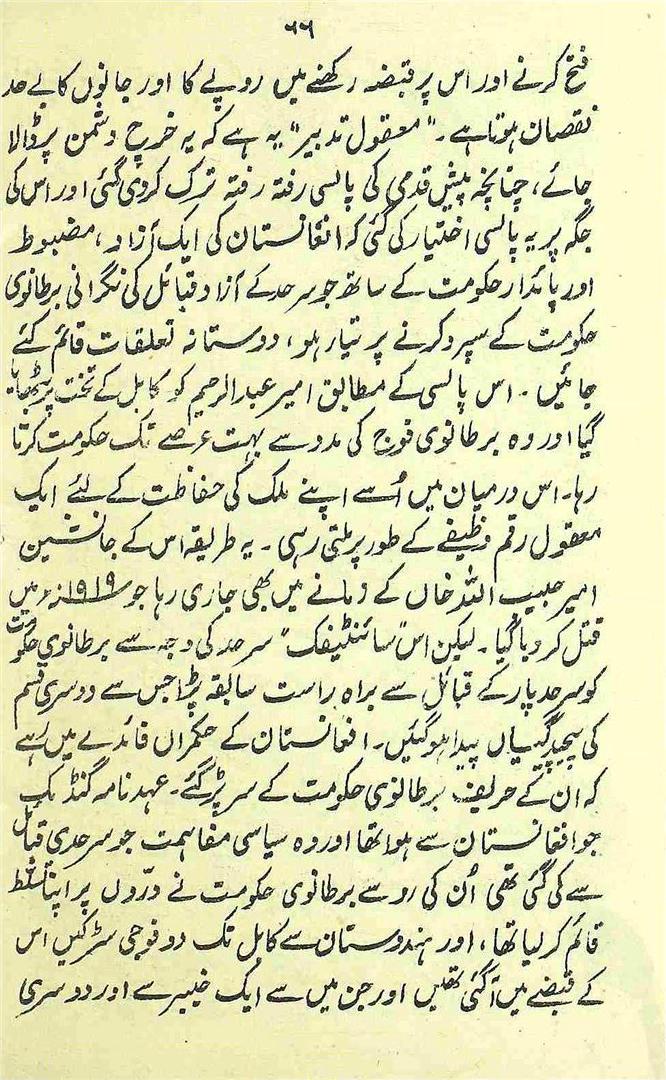 ۶۶
فتح کرنے اور اس پر قبضہ رکھنے میں روپے کا اور جانوں کا بے حد
نقصان ہوتا ہے۔ "معقول تدبیر" یہ ہے کہ یہ خرچ دشمن پر ڈالا
جائے، چنانچہ پیش قدمی کی پالسی رفتہ رفتہ ترک کر دی گئی اور اس کی
جگہ پر یہ پالسی اختیار کی گئی کہ افغانستان کی ایک آزاد، مضبوط
اور پائدار حکومت کے ساتھ جو سرحد کے آزاد قبائل کی نگرانی برطانوی
حکومت کے سپرد کرنے پر تیار ہو، دوستانہ تعلقات قائم کئے
جائیں۔ اس پالسی کے مطابق امیر عبدالرحیم کو کابل کے تخت پر بٹھایا
گیا اور وہ برطانوی فوج کی مدد سے بہت عرصے تک حکومت کرتا
رہا۔ اس درمیان میں اُسے اپنے ملک کی حفاظت کے لئے ایک
معقول رقم وظیفے کے طور پر ملتی رہی۔ یہ طریقہ اس کے جانشین
امیر حبیب اللہ خاں کے زمانے میں بھی جاری رہا جو ۱۹۱۹ء میں
قتل کر دیا گیا۔ لیکن اس "سائنٹیفک" سرحد کی وجہ سے برطانوی حکومت
کو سرحد پار کے قبائل سے براہ راست سابقہ پڑا جس سے دوسری قسم
کی پیچیدگیاں پیدا ہو گئیں۔ افغانستان کے حکمراں فائدے میں رہے
کہ ان کے حریف برطانوی حکومت کے سر پڑ گئے۔ عہد نامہ گنڈمک
جو افغانستان سے ہوا تھا اور وہ سیاسی مفاہمت جو سرحدی قبائل
سے کی گئی تھی اُن کی رو سے برطانوی حکومت نے درّوں پر اپنا تسلط
قائم کر لیا تھا، اور ہندوستان سے کابل تک دو فوجی سڑکیں اس
کے قبضے میں آ گئی تھیں اور جن میں سے ایک خیبر سے اور دوسری